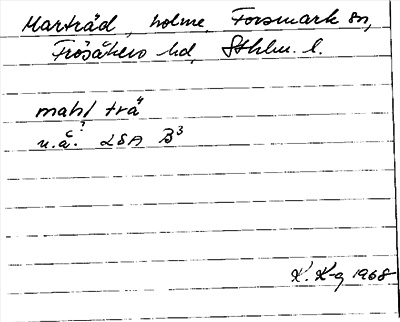 Marträd, holme, Forsmark sn,
Frösåkers hd, Sthlm. l.
mah/ trä
u.å. LSA B³
K. K-g 1968